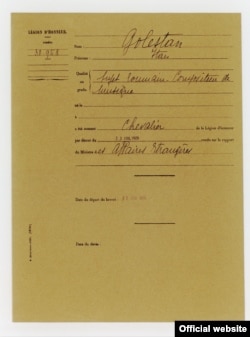 LÉGION D'HONNEUR
Nom Golestan
Prénoms Stan
Qualité ou grade Sujet roumain. Compositeur de
musique
né le
à
a été nommé Chevalier de la Légion d'honneur
par décret du rendu sur le rapport
du Ministre d es Affaires Etrangères
Date du départ du brevet
Date du décès
Official website